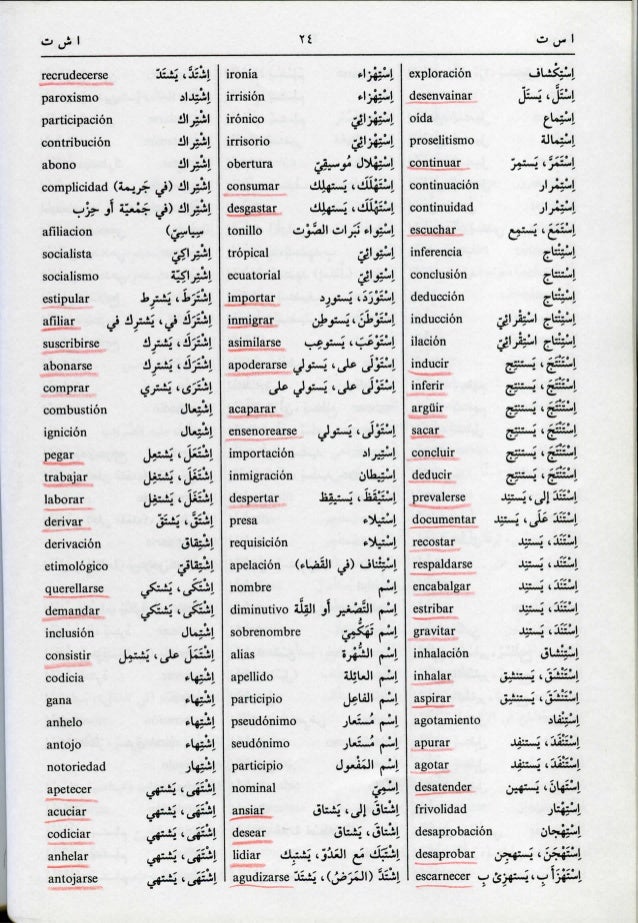 ا س ت ٢٤ ا ش ت
إِسْتِكْشاف exploración
إِسْتَلَّ ، يَسْتَلّ desenvainar
إِسْتِماع oida
إِسْتِمالة proselitismo
إِسْتَمَرَّ ، يَستمِرّ continuar
إِسْتِمْرار continuación
إِسْتِمْرار continuidad
إِسْتَمَعَ ، يَستمِع escuchar
إِسْتِنْتاج inferencia
إِسْتِنْتاج conclusión
إِسْتِنْتاج deducción
إِسْتِنْتاج اسْتِقْرائيّ inducción
إِسْتِنْتاج اسْتِقْرائيّ ilación
إِسْتَنْتَجَ ، يَستنتِج inducir
إِسْتَنْتَجَ ، يَستنتِج inferir
إِسْتَنْتَجَ ، يَستنتِج argüir
إِسْتَنْتَجَ ، يَستنتِج sacar
إِسْتَنْتَجَ ، يَستنتِج concluir
إِسْتَنْتَجَ ، يَستنتِج deducir
إِسْتَنَدَ إلى ، يَستنِد prevalerse
إِسْتَنَدَ عَلَى ، يَستنِد documentar
إِسْتَنَدَ ، يَستنِد recostar
إِسْتَنَدَ ، يَستنِد respaldarse
إِسْتَنَدَ ، يَستنِد encabalgar
إِسْتَنَدَ ، يَستنِد estribar
إِسْتَنَدَ ، يَستنِد gravitar
إِسْتِنْشاق inhalación
إِسْتَنْشَقَ ، يَستنشِق inhalar
إِسْتَنْشَقَ ، يَستنشِق aspirar
إِسْتِنْفاد agotamiento
إِسْتَنْفَدَ ، يَستنفِد apurar
إِسْتَنْفَدَ ، يَستنفِد agotar
إِسْتَهانَ ، يَستهين desatender
إِسْتِهْتار frivolidad
إِسْتِهْجان desaprobación
إِسْتَهْجَنَ ، يَستهجِن desaprobar
إِسْتَهْزَأَ ب ، يَستهزِئ ب escarnecer
إِسْتِهْزاء ironía
إِسْتِهْزاء irrisión
إِسْتِهْزائيّ irónico
إِسْتِهْزائيّ irrisorio
إِسْتِهْلال مُوسيقيّ obertura
إِسْتَهْلَكَ ، يَستهلِك consumar
إِسْتَهْلَكَ ، يَستهلِك desgastar
إِسْتِواء نَبَرات الصَّوْت tonillo
إِسْتِوائيّ trópical
إِسْتِوائيّ ecuatorial
إِسْتَوْرَدَ ، يَستورِد importar
إِسْتَوْطَنَ ، يَستوطِن inmigrar
إِسْتَوْعَبَ ، يَستوعِب asimilarse
إِسْتَوْلَى على ، يَستولي apoderarse
إِسْتَوْلَى على ، يَستولي على acaparar
إِسْتَوْلَى ، يَستولي ensenorearse
إِسْتِيراد importación
إِسْتِيطان inmigración
إِسْتَيْقَظَ ، يَستيقِظ despertar
إِسْتِيلاء presa
إِسْتِيلاء requisición
إِسْتِئناف (في القَضاء) apelación
إِسْم nombre
إِسْم التَّصْغير أو القِلَّة diminutivo
إِسْم تَهَكُّميّ sobrenombre
إِسْم الشُّهْرة alias
إِسْم العائِلة apellido
إِسْم الفاعِل participio
إِسْم مُسْتَعار pseudónimo
إِسْم مُسْتَعار seudónimo
إِسْم المَفْعول participio
إِسْميّ nominal
إِشْتاقَ إلى ، يَشتاق ansiar
إِشْتاقَ ، يَشتاق desear
إِشْتَبَكَ مَع العَدُوّ ، يَشتبِك lidiar
إِشْتَدَّ (المَرَضُ) ، يَشتدّ agudizarse
إِشْتَدَّ ، يَشتدّ recrudecerse
إِشْتِداد paroxismo
إِشْتِراك participación
إِشْتِراك contribución
إِشْتِراك abono
إِشْتِراك (في جَريمة) complicidad
إِشْتِراك (في جَمْعيّة أو حِزْب
سِياسيّ) afiliacion
إِشْتِراكيّ socialista
إِشْتِراكيّة socialismo
إِشْتَرَطَ ، يَشترِط estipular
إِشْتَرَكَ في ، يَشترِك في afiliar
إِشْتَرَكَ ، يَشترِك suscribirse
إِشْتَرَكَ ، يَشترِك abonarse
إِشْتَرَى ، يَشتري comprar
إِشْتِعال combustión
إِشْتِعال ignición
إِشْتَعَلَ ، يَشتعِل pegar
إِشْتَغَلَ ، يَشتغِل trabajar
إِشْتَغَلَ ، يَشتغِل laborar
إِشْتَقَّ ، يَشتقّ derivar
إِشْتِقاق derivación
إِشْتِقاقيّ etimológico
إِشْتَكَى ، يَشتكي querellarse
إِشْتَكَى ، يَشتكي demandar
إِشْتِمال inclusión
إِشْتَمَلَ على ، يَشتمِل consistir
إِشْتِهاء codicia
إِشْتِهاء gana
إِشْتِهاء anhelo
إِشْتِهاء antojo
إِشْتِهار notoriedad
إِشْتَهَى ، يَشتهي apetecer
إِشْتَهَى ، يَشتهي acuciar
إِشْتَهَى ، يَشتهي codiciar
إِشْتَهَى ، يَشتهي anhelar
إِشْتَهَى ، يَشتهي antojarse